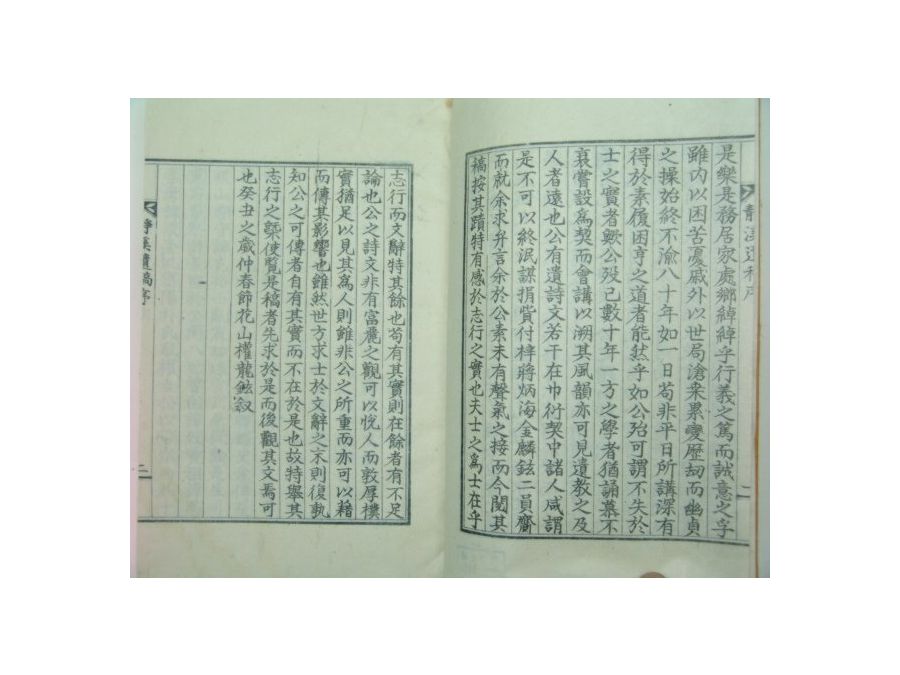 靜溪遺稿序
是樂是務居家處鄉綽綽乎行義之篤而誠意之孚
雖内以困苦憂戚外以世局滄桑累變歷刧而幽貞
之操始終不渝八十年如一日苟非平日所講深有
得於素履困亨之道者能然乎如公殆可謂不失於
士之實者歟公歿已數十年一方之學者猶誦慕不
衰嘗設爲契而會講以溯其風韻亦可見遺教之及
人者遠也公有遺詩文若干在巾衍契中諸人咸謂
是不可以終泯謀捐貲付梓將炳海金麟鉉二員齎
而就余求弁言余於公素未有聲氣之接而今閱其
稿按其蹟特有感於志行之實也夫士之爲士在乎
二
志行而文辭特其餘也苟有其實則在餘者有不足
論也公之詩文非有富麗之觀可以悅人而敦厚樸
實猶足以見其爲人則雖非公之所重而亦可以藉
而傳其影響也雖然世方求士於文辭之末則復孰
知公之可傳者自有其實而不在於是也故特舉其
志行之槩使覽是稿者先求於是而後觀其文焉可
也癸丑之歲仲春節花山權龍鉉叙
靜溪遺稿序
二